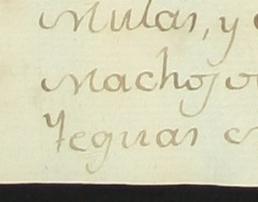 Mulas, y
Machos
Yeguas